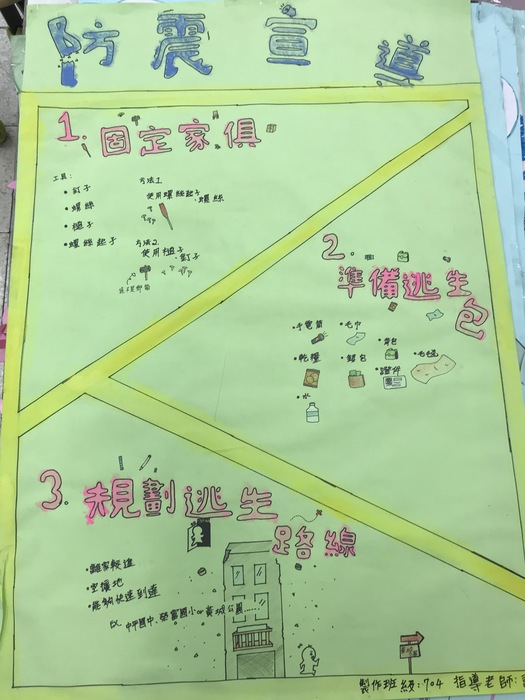 防震宣導
1. 固定家俱
工具:
• 釘子
• 螺絲
• 槌子
• 螺絲起子
方法1
使用螺絲起子、螺絲
方法2
使用槌子、釘子
2. 準備逃生包
• 手電筒
• 毛巾
• 背包
• 乾糧
• 錢包
• 證件
• 毛毯
• 水
3. 規劃逃生路線
• 離家較近
• 空曠地
• 能夠快速到達
製作班級:704 指導老師: